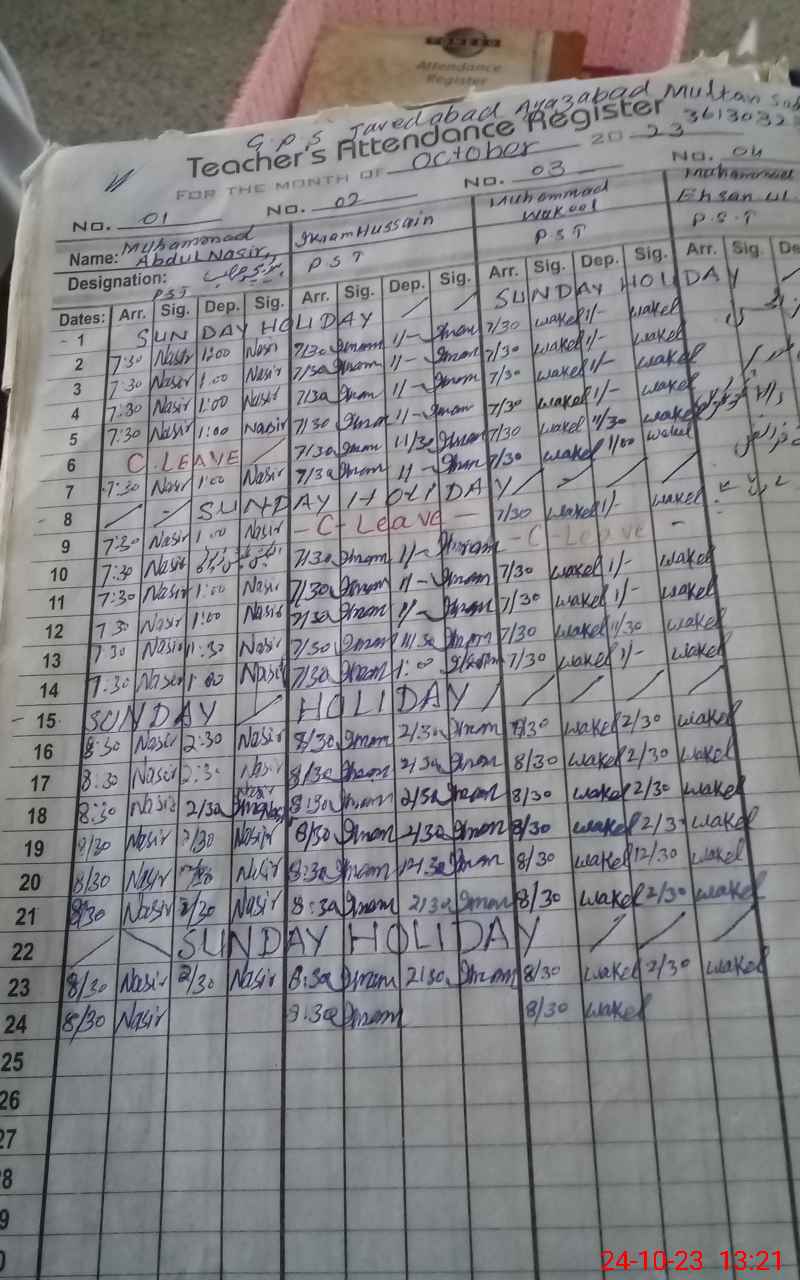 Attendance
Register
G.P.S Javedabad Ayazabad Multan
Teacher's Attendance Register
FOR THE MONTH OF October 20 23
No. 01 No. 02 No. 03 No. 04
Name: Muhammad Abdul Nasir Ikram Hussain Muhammad Wakeel Muhammad Ehsan ul
Designation: PST PST PST P.S.T
Dates: Arr. Sig. Dep. Sig. Arr. Sig. Dep. Sig. Arr. Sig. Dep. Sig. Arr. Sig.
1 SUNDAY HOLIDAY SUNDAY HOLIDAY
2 7:30 Nasir 1:00 Nasir 7/30 Ikram 1/- Ikram 7/30 wakel 1/- wakel
3 7:30 Nasir 1:00 Nasir 7/30 Ikram 1/- Ikram 7/30 wakel 1/- wakel
4 7:30 Nasir 1:00 Nasir 7/30 Ikram 1/- Ikram 7/30 wakel 1/- wakel
5 7:30 Nasir 1:00 Nasir 7/30 Ikram 1/- Ikram 7/30 wakel 1/- wakel
6 C.LEAVE 7/30 Ikram 11/30 Ikram 7/30 wakel 11/30 wakel
7 7:30 Nasir 1:00 Nasir 7/30 Ikram 1/- Ikram 7/30 wakel 1/00 wakel
8 SUNDAY HOLIDAY
9 7:30 Nasir 1:00 Nasir - C-Leave - 7/30 wakel 1/- wakel
10 7:30 Nasir 7/30 Ikram 1/- Ikram - C-Leave -
11 7:30 Nasir 1:00 Nasir 7/30 Ikram 1/- Ikram 7/30 wakel 1/- wakel
12 7:30 Nasir 1:00 Nasir 7/30 Ikram 1/- Ikram 7/30 wakel 1/- wakel
13 7:30 Nasir 11:30 Nasir 7/30 Ikram 11/30 Ikram 7/30 wakel 11/30 wakel
14 7:30 Nasir 1:00 Nasir 7/30 Ikram 1:00 Ikram 7/30 wakel 1/- wakel
15 SUNDAY HOLIDAY
16 8:30 Nasir 2:30 Nasir 8/30 Ikram 2/30 Ikram 8/30 wakel 2/30 wakel
17 8:30 Nasir 2:30 Nasir 8/30 Ikram 2/30 Ikram 8/30 wakel 2/30 wakel
18 8:30 Nasir 2/30 Nasir 8:30 Ikram 2/30 Ikram 8/30 wakel 2/30 wakel
19 8/30 Nasir 2/30 Nasir 8/30 Ikram 2/30 Ikram 8/30 wakel 2/3 wakel
20 8/30 Nasir 12/30 Nasir 8:30 Ikram 12/30 Ikram 8/30 wakel 12/30 wakel
21 8/30 Nasir 2/30 Nasir 8:30 Ikram 2/30 Ikram 8/30 wakel 2/30 wakel
22 SUNDAY HOLIDAY
23 8/30 Nasir 2/30 Nasir 8:30 Ikram 2/30 Ikram 8/30 wakel 2/30 wakel
24 8/30 Nasir 8:30 Ikram 8/30 wakel
25
26
27
8
9
24-10-23 13:21